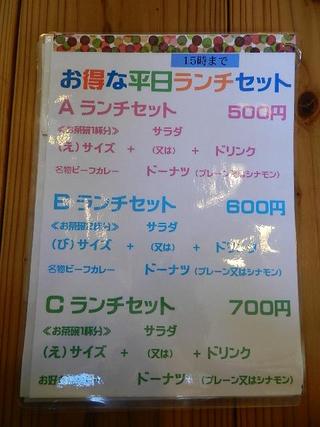 15時まで
お得な平日ランチセット
A ランチセット 500円
≪お茶碗1杯分≫ サラダ
(え)サイズ + (又は) + ドリンク
名物ビーフカレー ドーナツ (プレーン又はシナモン)
B ランチセット 600円
≪お茶碗2杯分≫ サラダ
(び)サイズ + (又は) + ドリンク
名物ビーフカレー ドーナツ (プレーン又はシナモン)
C ランチセット 700円
≪お茶碗1杯分≫ サラダ
(え)サイズ + (又は) + ドリンク
ドーナツ (プレーン又はシナモン)